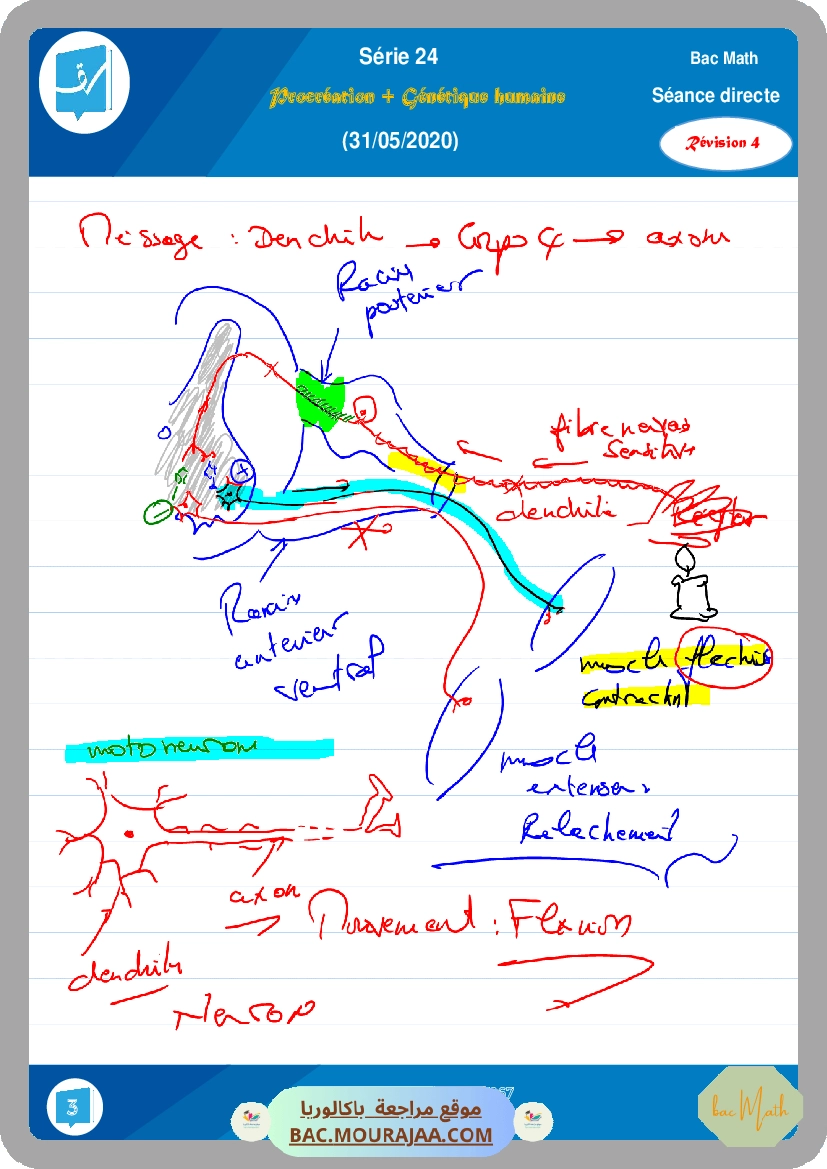 Série 24
Bac Math
Procréation + Génétique humaine
Séance directe
(31/05/2020)
Révision 4
Message : Dendrite → Corps C → axone
Racine
posterieur
fibre nerveuse
sensitive
dendrite
Récepteur
Racine
anterieur
ventral
muscle fléchis
contraction
motoneurone
muscle
extenseur
Relachement
axon
Mouvement : Flexion
dendrite
Neurone
3
موقع مراجعة باكالوريا
BAC.MOURAJAA.COM
bac Math